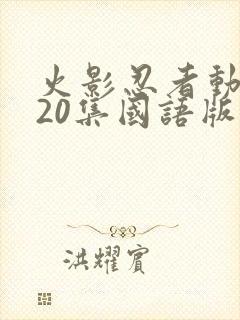 火影忍者動
20集國語版
洪耀賓